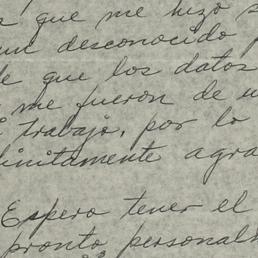 que me hizo
un desconocido
que los datos
me fueron de
trabajo, por lo
initamente agra
Espero tener el
pronto personal